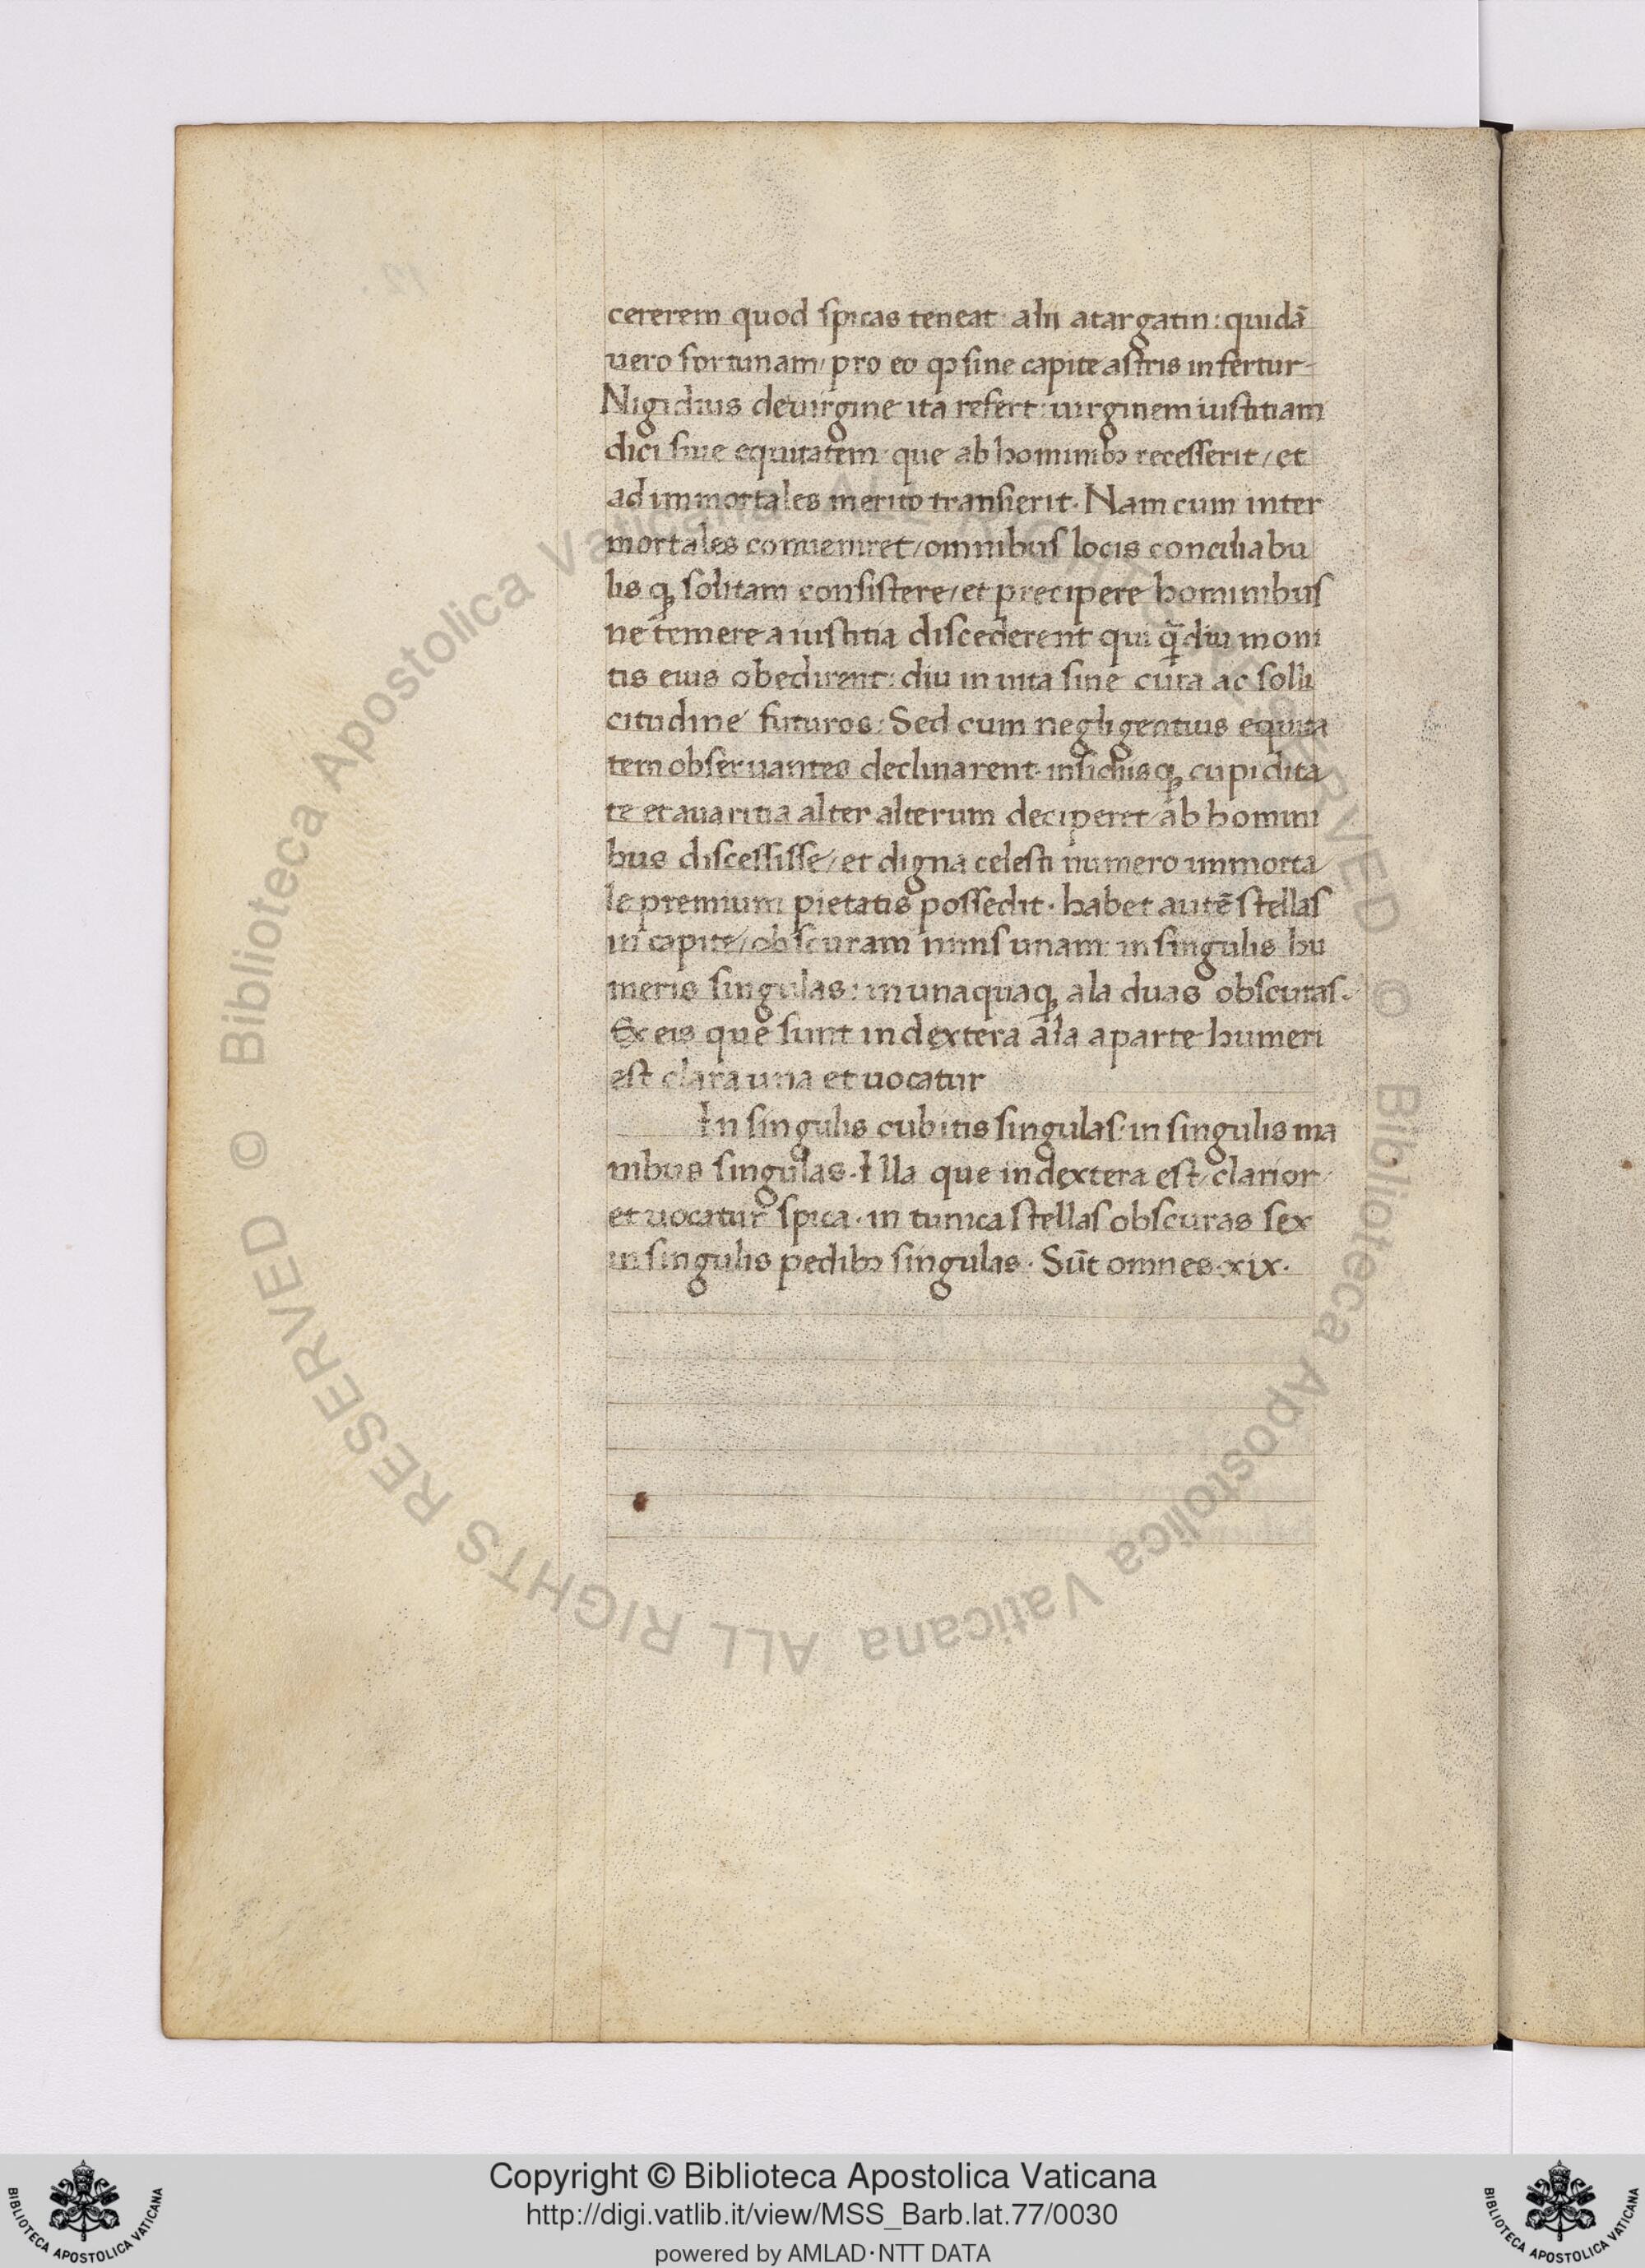 cererem quod spicas teneat: alii atargatin: quidã
uero fortunam/ pro eo qꝫ sine capite astris infertur.
Nigidius de uirgine ita refert: uirginem iustitiam
dici siue equitatem: que ab hominibꝫ recesserit/ et
ad immortales merito transierit. Nam cum inter
mortales conueniret/ omnibus locis conciliabu
lis qꝫ solitam consistere/ et precipere hominibus
ne temere a iustitia discederent qui q̃diu moni
tis eius obedirent: diu in uita sine cura ac solli
citudine futuros: Sed cum negligentius equita
tem obseruantes declinarent. insidiisqꝫ cupidita
te et auaritia alter alterum deciperet/ ab homini
bus discessisse/ et digna celesti numero immorta
le premium pietatis possedit. habet autẽ stellas
in capite/ obscuram nimis unam: in singulis hu
meris singulas: in unaquaqꝫ ala duas obscuras.
Ex eis que sunt in dextera ala a parte humeri
est clara una et uocatur
In singulis cubitis singulas: in singulis ma
nibus singulas. Illa que in dextera est/ clarior/
et uocatur spica. in tunica stellas obscuras sex
in singulis pedibꝫ singulas. Sũt omnes .xix.
© Biblioteca Apostolica Vaticana ALL RIGHTS RESERVED © Biblioteca Apostolica Vaticana ALL RIGHTS RESERVED
Copyright © Biblioteca Apostolica Vaticana
http://digi.vatlib.it/view/MSS_Barb.lat.77/0030
powered by AMLAD·NTT DATA
BIBLIOTECA APOSTOLICA VATICANA
BIBLIOTECA APOSTOLICA VATICANA